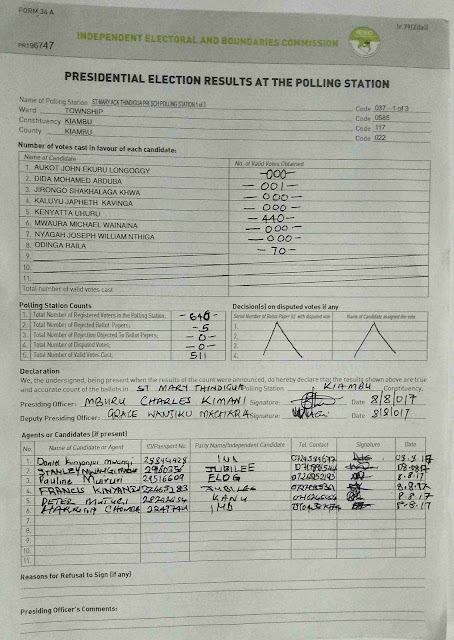 FORM 34 A
(r.79(2)(a))
PR190747
INDEPENDENT ELECTORAL AND BOUNDARIES COMMISSION
PRESIDENTIAL ELECTION RESULTS AT THE POLLING STATION
Name of Polling Station ST MARY ACK THINDIGUA PRI SCH POLLING STATION 1 of 3 Code 037 - 1 of 3
Ward TOWNSHIP Code 0585
Constituency KIAMBU Code 117
County KIAMBU Code 022
Number of votes cast in favour of each candidate:
Name of Candidate No. of Valid Votes Obtained
1. AUKOT JOHN EKURU LONGOGGY -000-
2. DIDA MOHAMED ABDUBA - 001 -
3. JIRONGO SHAKHALAGA KHWA - 000 -
4. KALUYU JAPHETH KAVINGA - 000 -
5. KENYATTA UHURU - 440 -
6. MWAURA MICHAEL WAINAINA - 000 -
7. NYAGAH JOSEPH WILLIAM NTHIGA - 000 -
8. ODINGA RAILA - 70 -
9.
10.
11.
Total number of valid votes cast
Polling Station Counts Decision(s) on disputed votes if any
1. Total Number of Registered Voters in the Polling Station; - 640 -
2. Total Number of Rejected Ballot Papers; - 5
3. Total Number of Rejection Objected To Ballot Papers; - 0 -
4. Total Number of Disputed Votes; - 0 -
5. Total Number of Valid Votes Cast; 511
Serial Number of Ballot Paper (s) with disputed vote Name of Candidate assigned the vote
1.
2.
3.
4.
Declaration
We, the undersigned, being present when the results of the count were announced, do hereby declare that the results shown above are true
and accurate count of the ballots in ST MARY THINDIGUA Polling Station KIAMBU Constituency.
Presiding Officer: MBURU CHARLES KIMANI Signature: Date 8/8/017
Deputy Presiding Officer: GRACE WANJIKU MACHARIA Signature: Date 8/8/017
Agents or Candidates (if present)
Name of Candidate or Agent ID/Passport No. Party Name/Independent Candidate Tel. Contact Signature Date
1. Kinyanjui 8.8.17
2. STANLEY JUBILEE
3. Pauline Mururi 29516609 ELOG 8.8.17
4. FRANCIS KINYANJUI JUBILEE 8.8.17
5. PETER KANU 8.8.17
6. IND 8.8.17
7.
8.
9.
10.
11.
Reasons for Refusal to Sign (if any)
Presiding Officer's Comments: